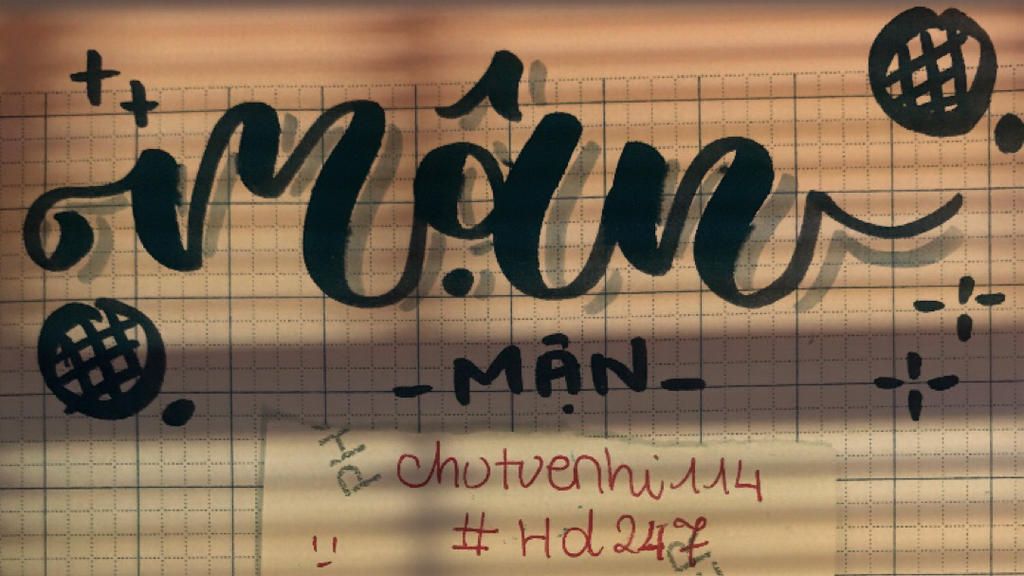 mận
- MẬN -
Hd
chutuenhi114
# Hd 247
!!